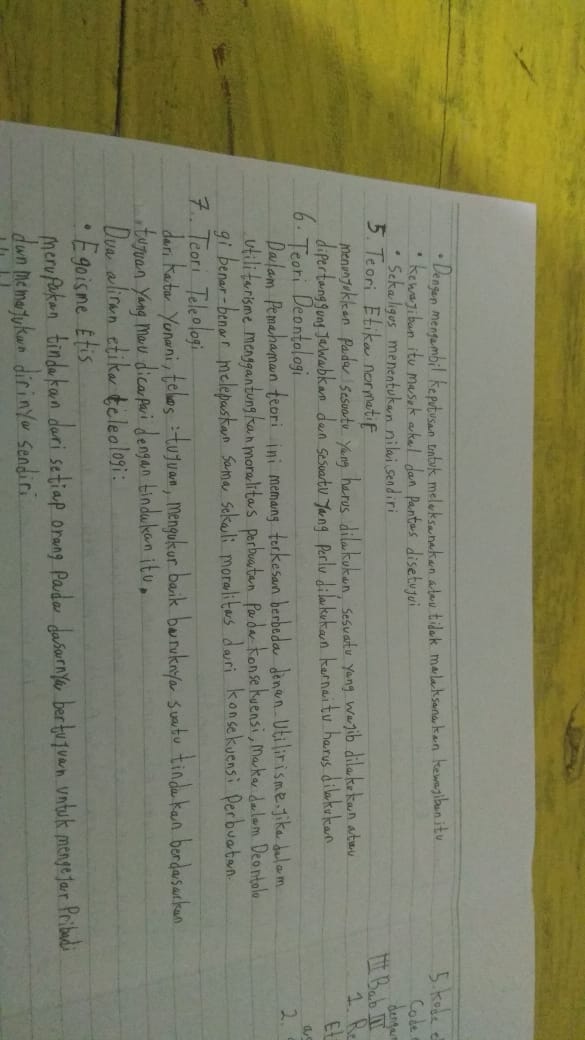 • Dengan mengambil keputusan untuk melaksanakan atau tidak melaksanakan kewajiban itu
• kewajiban itu masuk akal dan Pantas disetujui
• Sekaligus menentukan nilai sendiri
5. Teori Etika normatif
menunjukkan Pada sesuatu Yang harus dilakukan, sesuatu yang wajib dilakukan atau
dipertanggung Jawabkan dan sesuatu Yang Perlu dilakukan karna itu harus dilakukan
6. Teori Deontologi
Dalam Pemahaman teori ini memang terkesan berbeda denan Utilirisme. Jika dalam
utilitarisme menggantungkan moralitas perbuatan Pada konsekuensi, maka dalam Deontolo
gi benar-benar melepaskan sama sekali moralitas dari konsekuensi Perbuatan
7. Teori Teleologi
dari kata Yunani, telos : tujuan, mengukur baik buruknya suatu tindakan berdasarkan
tujuan Yang mau dicapai dengan tindakan itu.
Dua aliran etika teleologi:
• Egoisme Etis
merupakan tindakan dari setiap orang Pada dasarnya bertujuan untuk mengejar Pribadi
dan memajukan dirinya sendiri
5. Kode
Code
dengan
III Bab III
1. Re
Et
2.